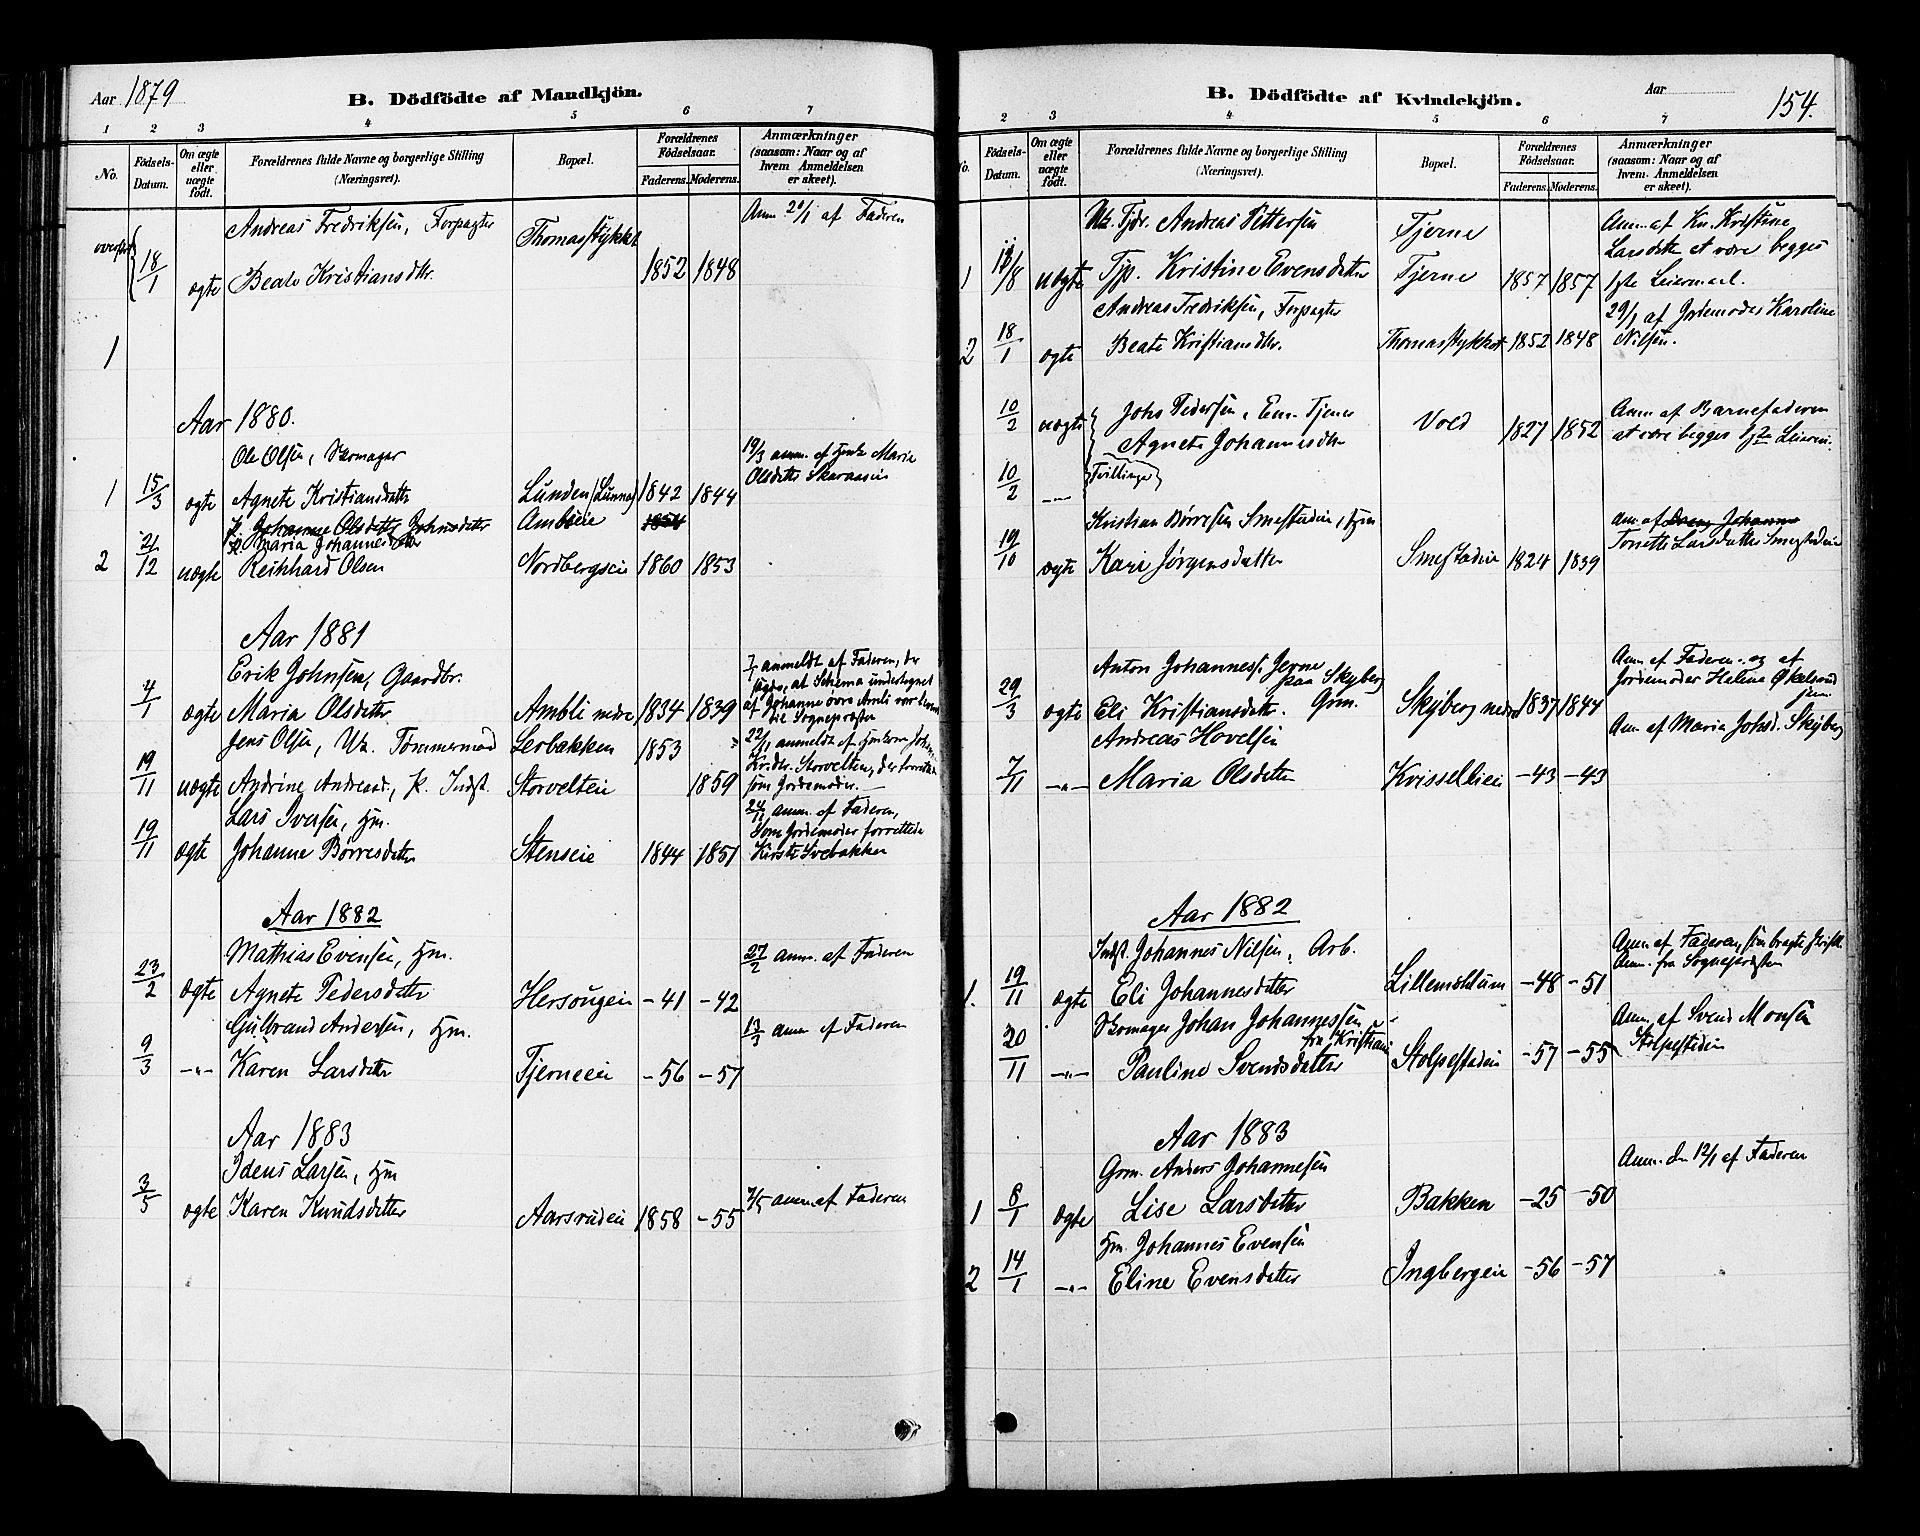 Aar 1879
B. Dödfödte af Mandkjön.
1 2 3 4 5 6 7
No. Födsels-Datum. Om ægte eller uægte födt. Forældrenes fulde Navne og borgerlige Stilling (Næringsvei). Bopæl. Forældrenes Födselsaar. Faderens. Moderens. Anmærkninger (saasom: Naar og af hvem Anmeldelsen er skeet).
Andreas Fredriksen, Forpagter Thomasstykket Anm. 20/1 af Faderen
18/1 ægte Beate Kristiansdtr. 1852 1848
1
Aar 1880.
Ole Olsen, Skomager 19/3 anm. af Maria
Olsdatter
1 15/3 ægte Agnete Kristiansdatter Lunden (Lunna) 1842 1844
P. Johanne Olsdatter Johnsdatter Ambleie 1854
P. Maria Johannesdtr
2 21/12 uægte Reinhard Olsen Nordbergseie 1860 1853
Aar 1881
Erik Johnsen, Gaardbr. 7/1 anmeldt af Faderen, der
sagde, at Schema undertegnet
af Johanne övre Ambli var
die Sognepræsten
4/1 ægte Maria Olsdatter Ambli nedre 1834 1839
Jens Olsen, Uk. Tömmermand Lerbakken 1853 " 22/11 anmeldt af
Kr.dtr. Storvelten, der forrettede
19/11 uægte Andrine Andreasd., P. Indst. Storvelteie 1859 som Jordemoder.
Lars Iversen, Hm. 24/11 anm. af Faderen,
Som Jordemoder forrettede
19/11 ægte Johanne Börresdatter Stenseie 1844 1851 Kirsti Svebakken
Aar 1882
Mathias Evensen, Hm. 27/2 anm. af Faderen
23/2 ægte Agnete Pedersdatter Hersougeie -41 -42
Gulbrand Andersen, Hm. 13/3 anm af Faderen
9/3 -"- Karen Larsdatter Tjerneeie -56 -57
Aar 1883
Idens Larsen, Hm
3/5 ægte Karen Knudsdatter Aarsrudeie 1858 -55 7/5 anm. af Faderen
B. Dödfödte af Kvindekjön.
Aar 154.
2 3 4 5 6 7
No. Födsels-Datum. Om ægte eller uægte födt. Forældrenes fulde Navne og borgerlige Stilling (Næringsvei). Bopæl. Forældrenes Födselsaar. Faderens. Moderens. Anmærkninger (saasom: Naar og af hvem Anmeldelsen er skeet).
Uk. Tjdr. Andreas Pettersen Tjerne Anm. af Kn. Kristine
Larsdtr at være begges
1 /8 uægte Tjp. Kristine Evensdatter Tjerne 1857 1857 1ste Leiermaal.
Andreas Fredriksen, Forpagter 29/1 af Jordemoder Karoline
2 18/1 ægte Beate Kristiansdtr. Thomasstykket 1852 1848 Nilsen.
10/2 uægte Johs Pedersen, Em. Tjener Vold 1827 1852 Anm af Barnefaderen
Agnete Johannesdtr at være begges Leierm.
10/2 -"- Tvillinge
Kristian Börresen Smestadeie, Hm Anm. af Johanne
Tonette Larsdatter Smestadeie
19/10 ægte Kari Jörgensdatter Smestadeie 1824 1839
Anton Johanness. Jerne Anm af Faderen og af
paa Skyberg Jordemoder Halina
29/3 ægte Eli Kristiansdatter. Grm. Skyberg nedre 1837 1844
Andreas Hovelsen Anm af Maria Johsd. Skyberg
7/11 -"- Maria Olsdatter Kvisselbieie -43 -43
Aar 1882
Indst. Johannes Nilsen, Arb. Anm. af Faderen, som bragte
Anm. fra Sognepræsten
1. 19/11 ægte Eli Johannesdatter Lillemoldum -48 -51
Skomager Johan Johannessen Anm. af Svend Monsen
fra Kristiania Stolpestadeie
20/11 -"- Pauline Svendsdatter Stolpestadeie -57 -55
Aar 1883
Grm. Anders Johannesen Anm. den 12/1 af Faderen
1 8/1 ægte Lise Larsdatter Bakken -25 -50
Hm. Johannes Evensen
2 14/1 -"- Eline Evensdatter Ingbergeie -56 -57